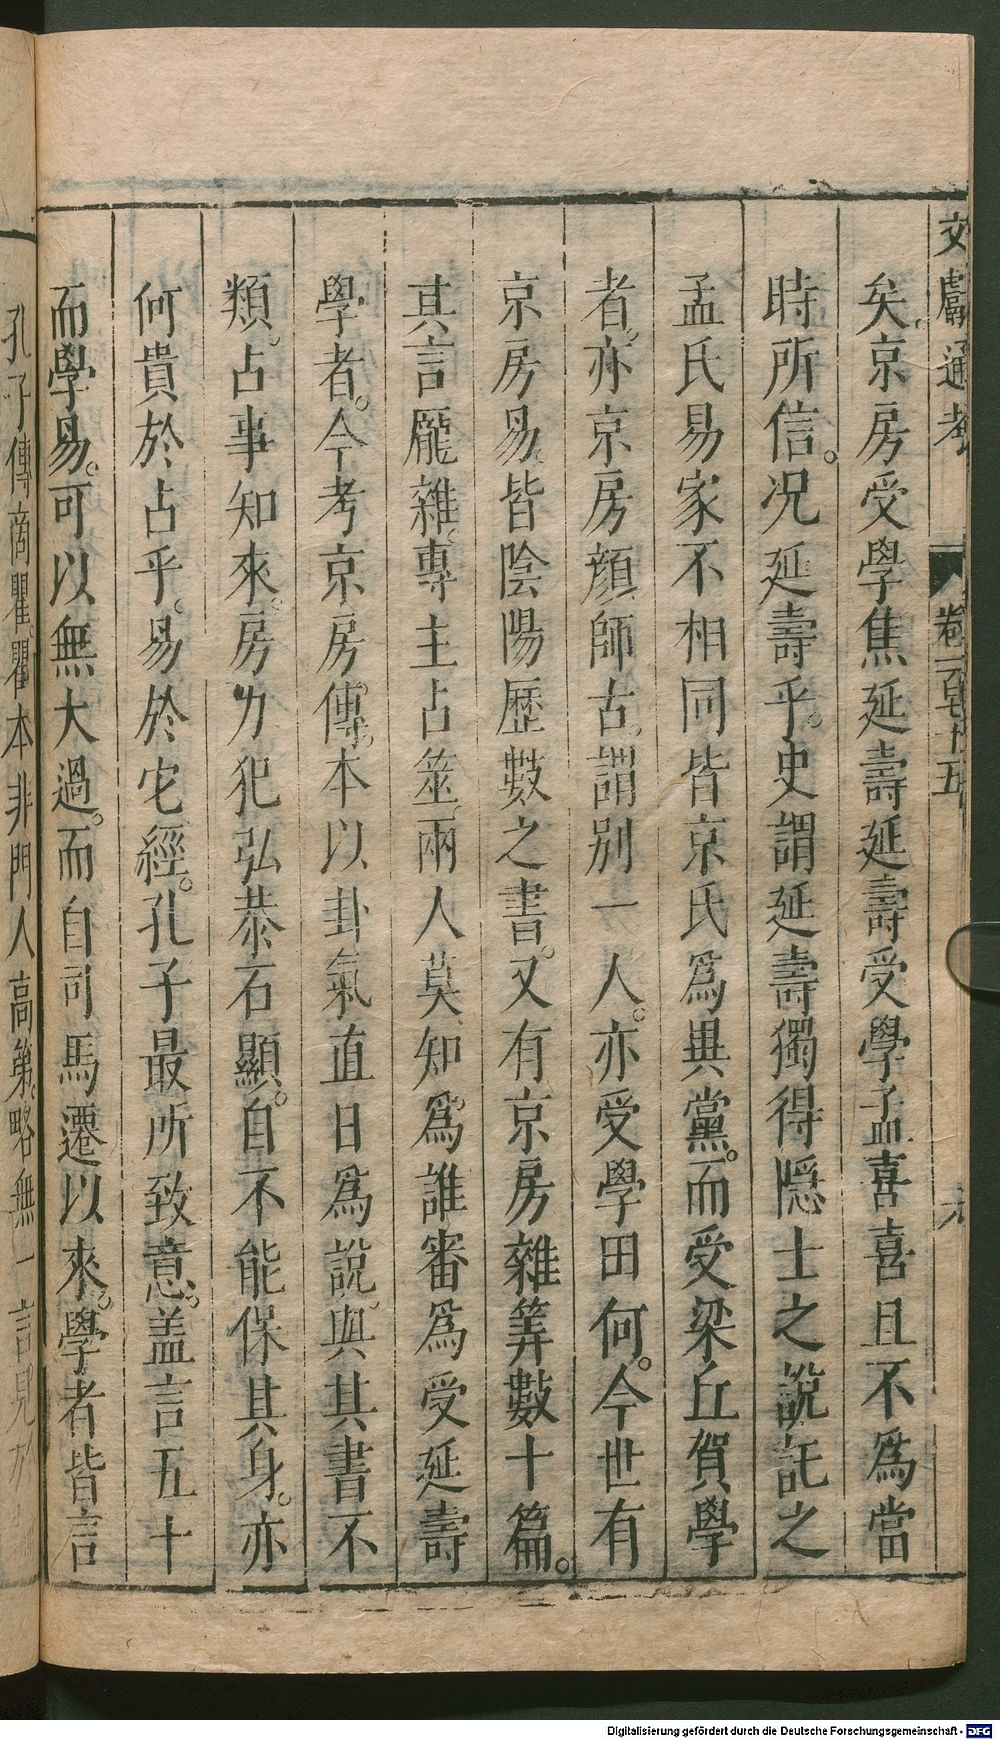 文獻通考 卷一百七十五 六
矣。京房受學焦延壽延壽受學孟喜喜且不為當
時所信。況延壽乎。史謂延壽獨得隱士之說託之
孟氏易家不相同皆京氏為異黨。而受梁丘賀學
者。亦京房顏師古。謂別一人。亦受學田何。今世有
京房易。皆陰陽歷數之書。又有京房雜筭數十篇。
其言龐雜。專主占筮。兩人莫知為誰審為受延壽
學者。今考京房傳。本以卦氣直日為說。與其書不
類。占事知來。房力犯弘恭石顯。自不能保其身。亦
何貴於占乎。易於它經。孔子最所致意。盖言五十
而學易。可以無大過。而自司馬遷以來。學者皆言
孔子傳商瞿。瞿本非門人高第。略無一言見於
Digitalisierung gefördert durch die Deutsche Forschungsgemeinschaft - DFG